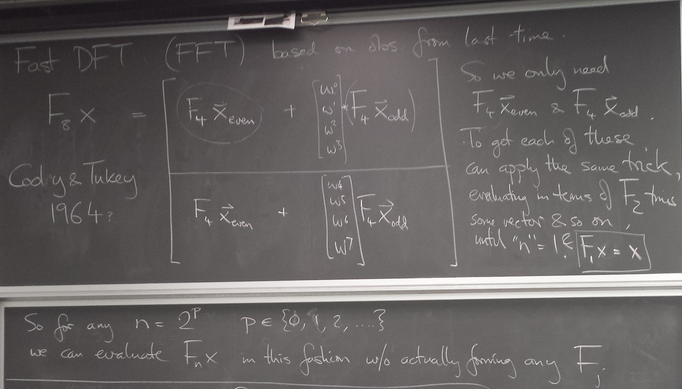 Fast DFT (FFT) based on obs. from last time.
F₈ x = [ F₄ x⃗even + [ w⁰ w¹ w² w³ ] * (F₄ x⃗odd)
F₄ x⃗even + [ w⁴ w⁵ w⁶ w⁷ ] F₄ x⃗odd ]
Cooly & Tukey
1964?
So we only need
F₄ x⃗even & F₄ x⃗odd.
To get each of these,
can apply the same trick,
evaluating in terms of F₂ times
some vector & so on,
until "n" = 1 & F₁x = x
So for any n = 2ᵖ p ∈ {0, 1, 2, ....}
we can evaluate Fₙx in this fashion w/o actually forming any Fⱼ.